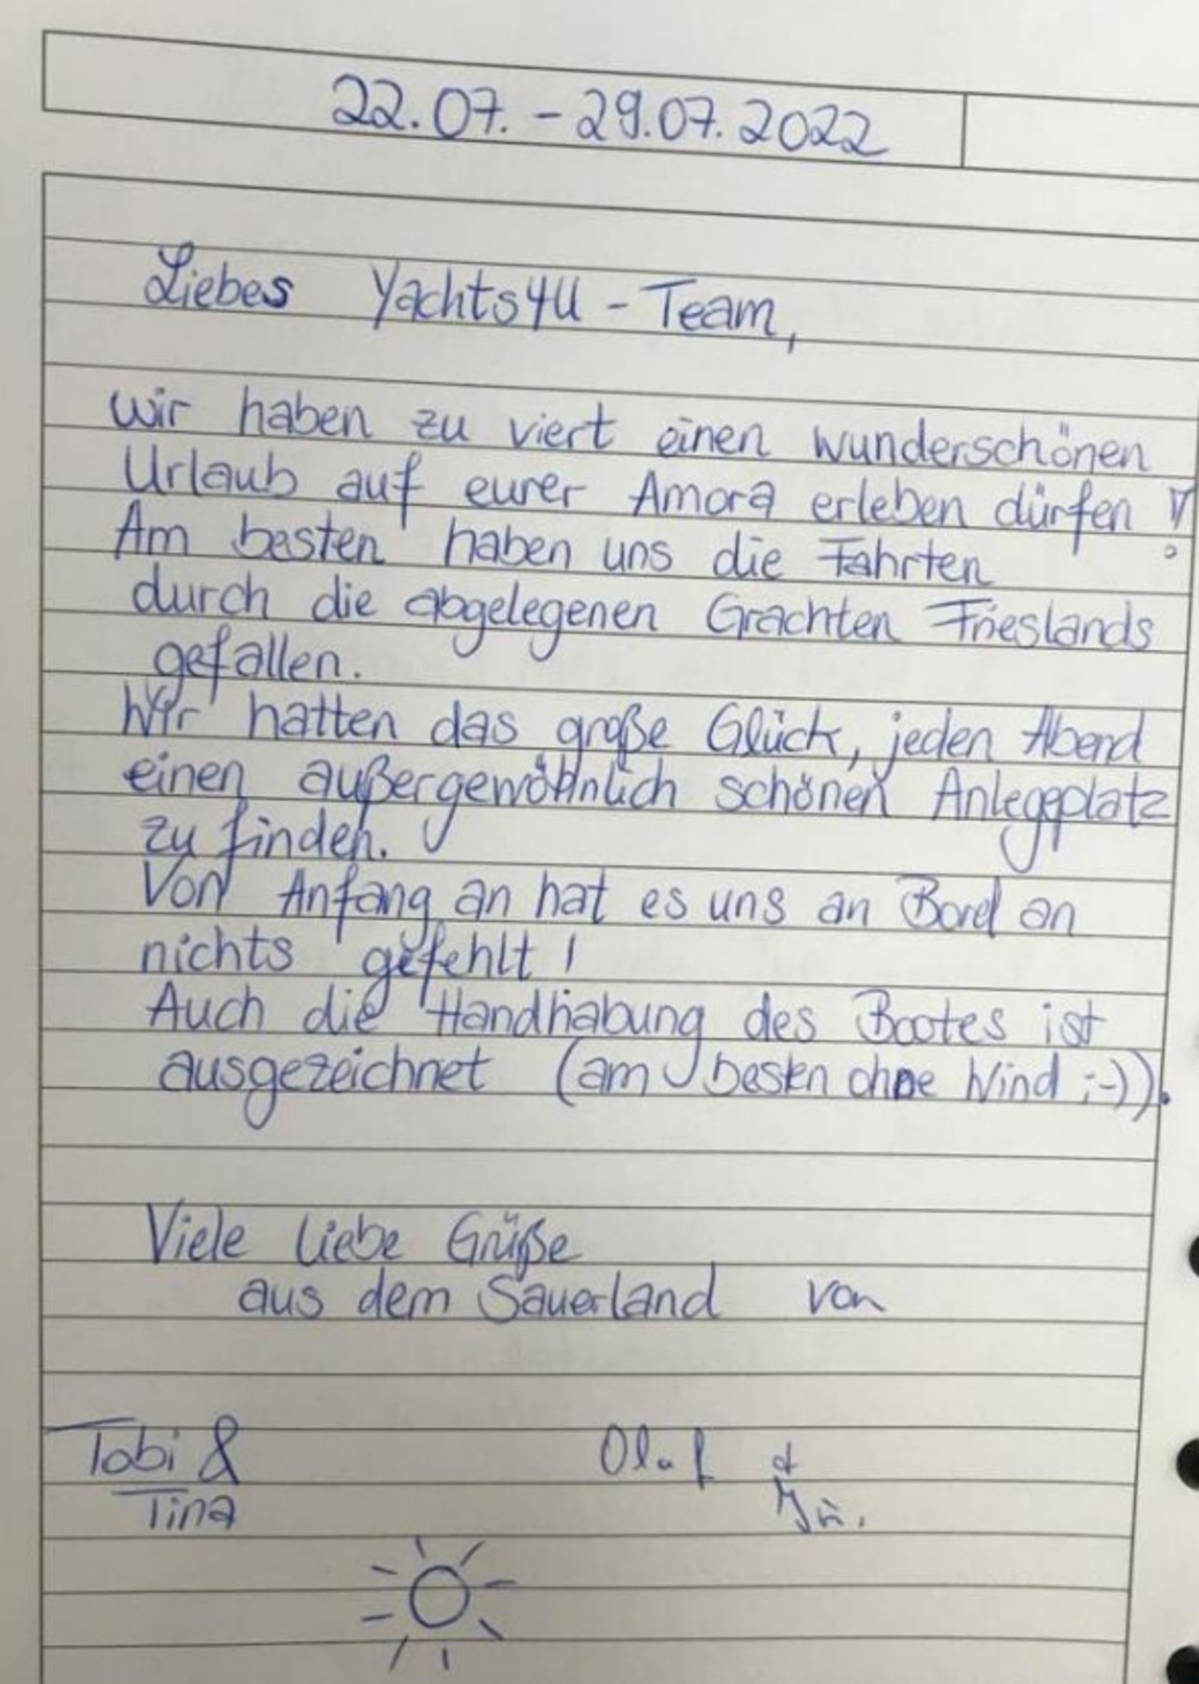 22.07. - 29.07.2022
Liebes Yachts4U - Team,
wir haben zu viert einen wunderschönen
Urlaub auf eurer Amora erleben dürfen!
Am besten haben uns die Fahrten
durch die abgelegenen Grachten Frieslands
gefallen.
Wir hatten das große Glück, jeden Abend
einen außergewöhnlich schönen Anlegeplatz
zu finden.
Von Anfang an hat es uns an Bord an
nichts gefehlt!
Auch die Handhabung des Bootes ist
ausgezeichnet (am besten ohne Wind ;-)).
Viele liebe Grüße
aus dem Sauerland von
Tobi & Olaf &
Tina